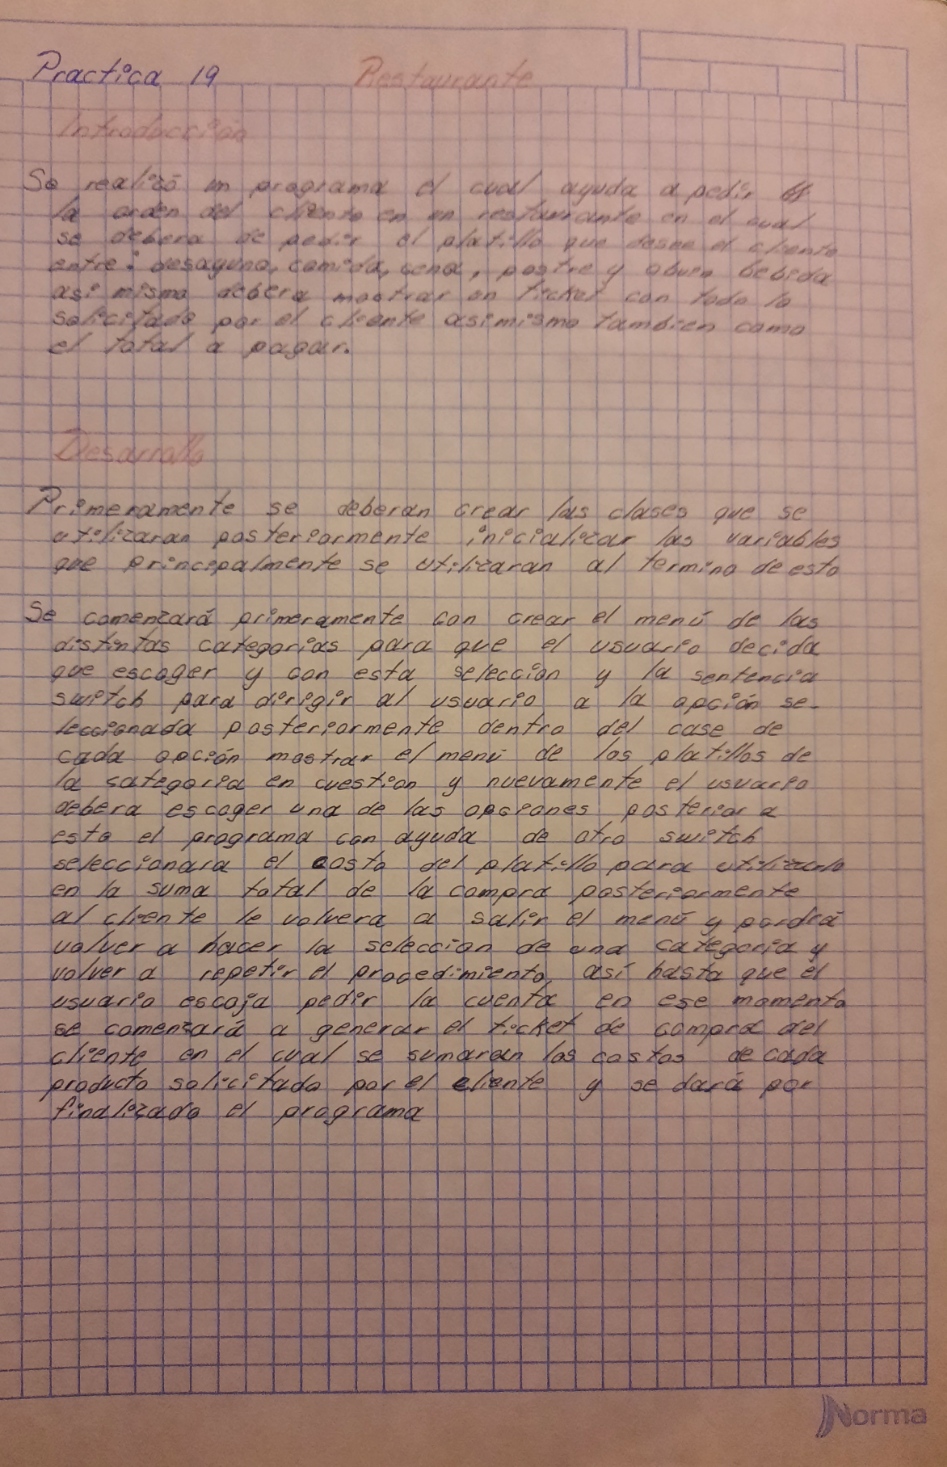 Practica 19 Restaurante
Introducción
Se realizó un programa el cual ayuda a pedir
la orden del cliente en un restaurante en el cual
se debera de pedir el platillo que desee el cliente
entre: desayuno, comida, cena, postre y bebida
asi mismo debera mostrar un ticket con todo lo
solicitado por el cliente asimismo tambien como
el total a pagar.
Desarrollo
Primeramente se deberan crear las clases que se
utilizaran posteriormente inicializar las variables
que principalmente se utilizaran al termino de esto
Se comenzará primeramente con crear el menú de las
distintas categorias para que el usuario decida
que escoger y con esta selección y la sentencia
switch para dirigir al usuario a la opción se-
leccionada posteriormente dentro del case de
cada opción mostrar el menú de los platillos de
la categoria en cuestion y nuevamente el usuario
debera escoger una de las opciones posterior a
esto el programa con ayuda de otro switch
seleccionara el costo del platillo para utilizarlo
en la suma total de la compra posteriormente
al cliente le volvera a salir el menú y pordrá
volver a hacer la seleccion de una categoria y
volver a repetir el procedimiento, así hasta que el
usuario escoja peder la cuenta en ese momento
se comenzará a generar el ticket de compra del
cliente en el cual se sumaran los costos de cada
producto solicitado por el cliente y se dará por
finalizado el programa
Norma